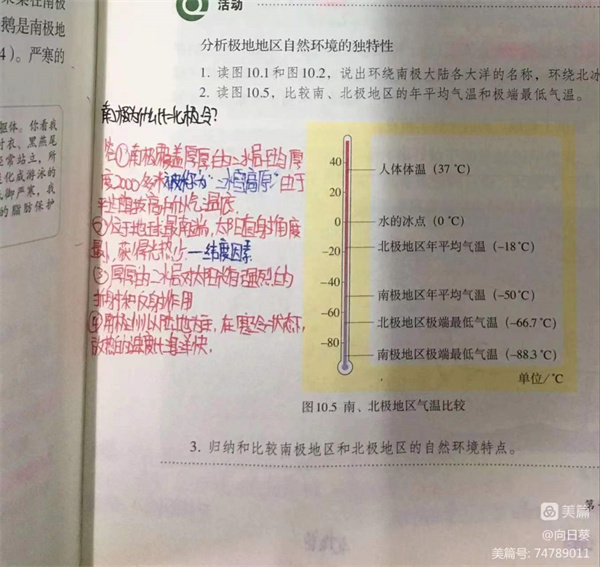 活动
分析极地地区自然环境的独特性
1. 读图10.1和图10.2，说出环绕南极大陆各大洋的名称，环绕北冰
2. 读图10.5，比较南、北极地区的年平均气温和极端最低气温。
鹅是南极地
4）。严寒的
躯体。你看我
衬衣、黑燕尾
经常站立，所
进化成游泳的
御严寒，我
的脂肪保护
南极为什么比北极冷？
答①南极覆盖厚厚的冰层平均厚
度2000多米被称为“冰雪高原”由于
平均海拔高的气温低
②位于地球最南端，太阳直射角度
最小，获得光热少——纬度因素
③厚厚的冰层对太阳光有强烈的
折射和反射作用
④南极洲以陆地为主，在寒冷状态下，
放热的速度比海洋快。
40
20
0
−20
−40
−60
−80
人体体温（37 ℃）
水的冰点（0 ℃）
北极地区年平均气温（−18℃）
南极地区年平均气温（−50℃）
北极地区极端最低气温（−66.7 ℃）
南极地区极端最低气温（−88.3 ℃）
单位/℃
图10.5 南、北极地区气温比较
3. 归纳和比较南极地区和北极地区的自然环境特点。
第
美篇
@向日葵
美篇号: 74789011